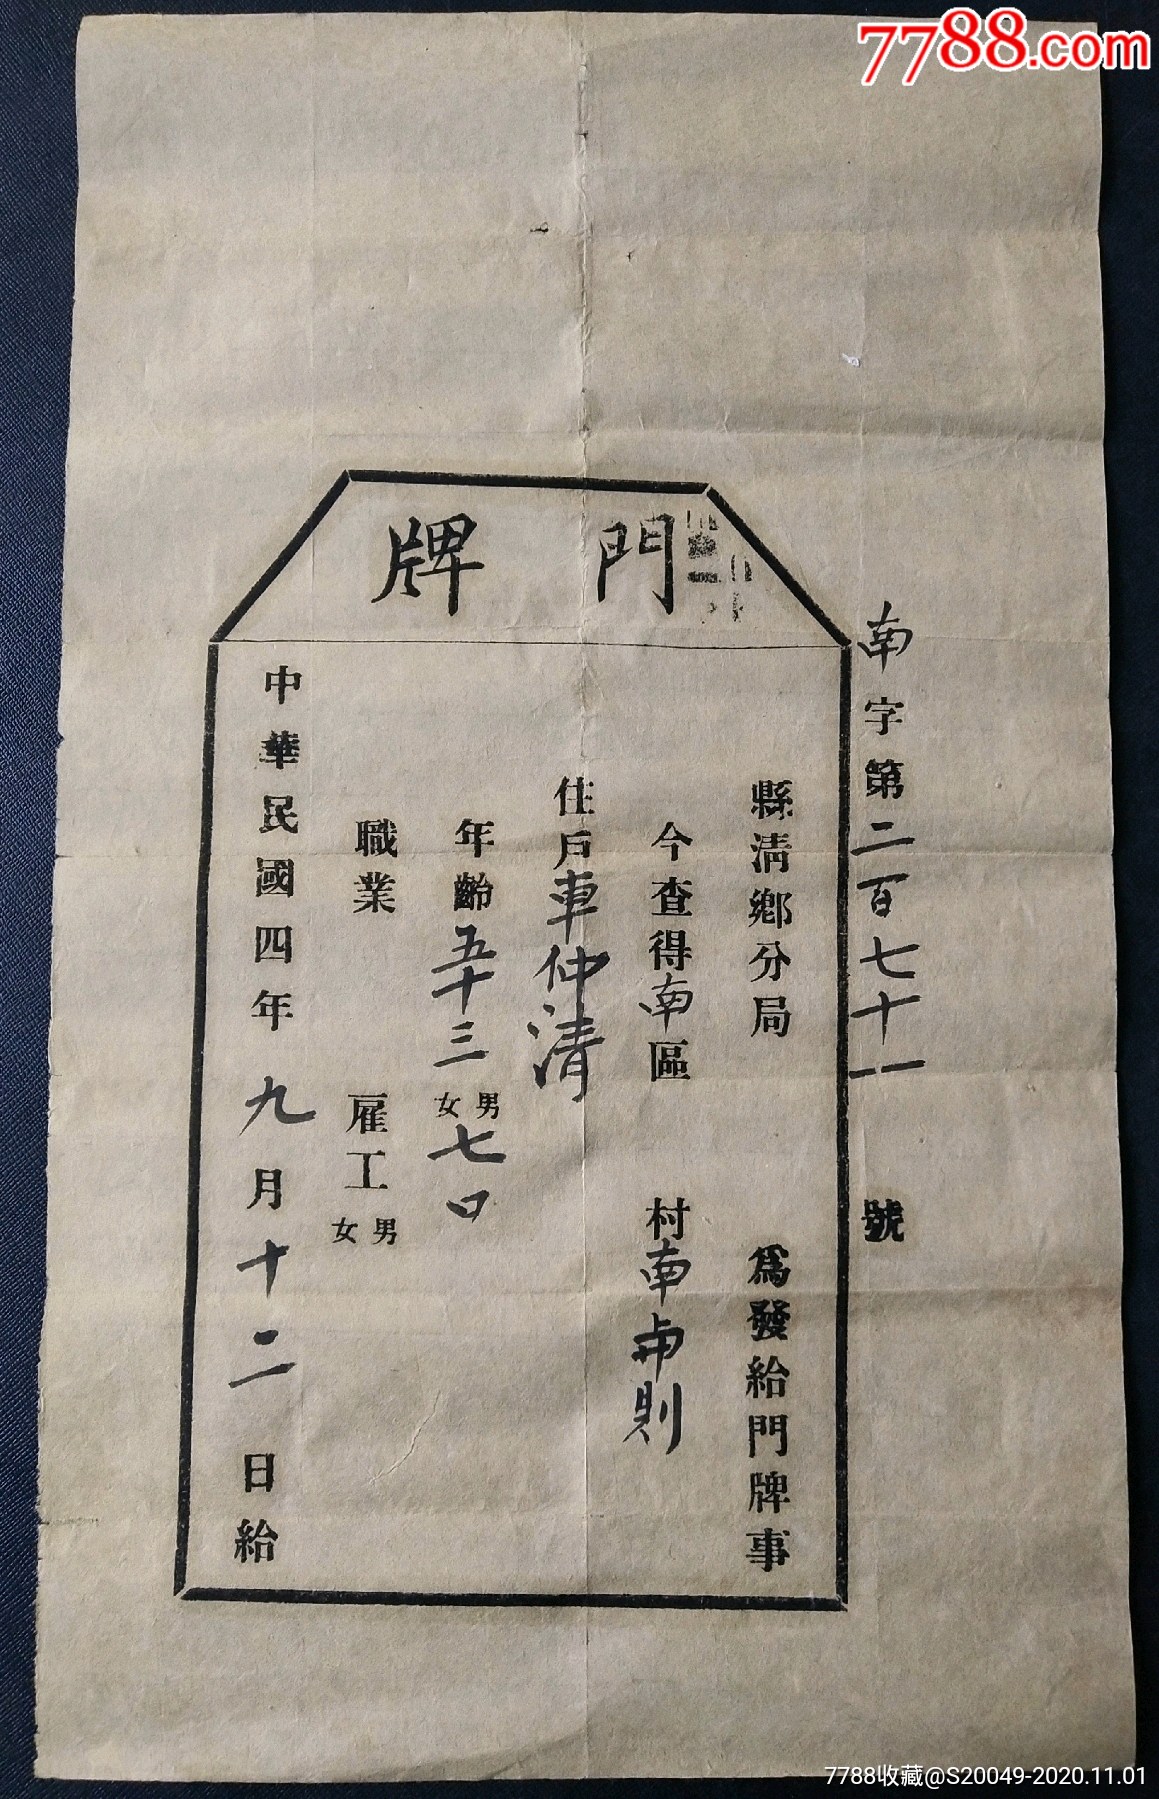 7788.com
門牌
南字第二百七十一號
縣清鄉分局 為發給門牌事
今查得南區 村南甫則
住戶車仲清
年齡五十三 男女七口
職業 雇工 男女
中華民國四年九月十二日給
7788收藏@S20049-2020.11.01